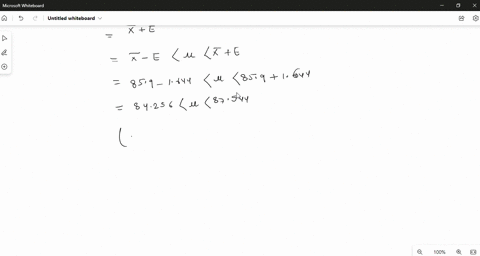 Microsoft Whiteboard
Untitled whiteboard
= x̄ + E
= x̄ - E < μ < x̄ + E
= 85.9 - 1.644 < μ < 85.9 + 1.644
= 84.256 < μ < 87.544
(
100%